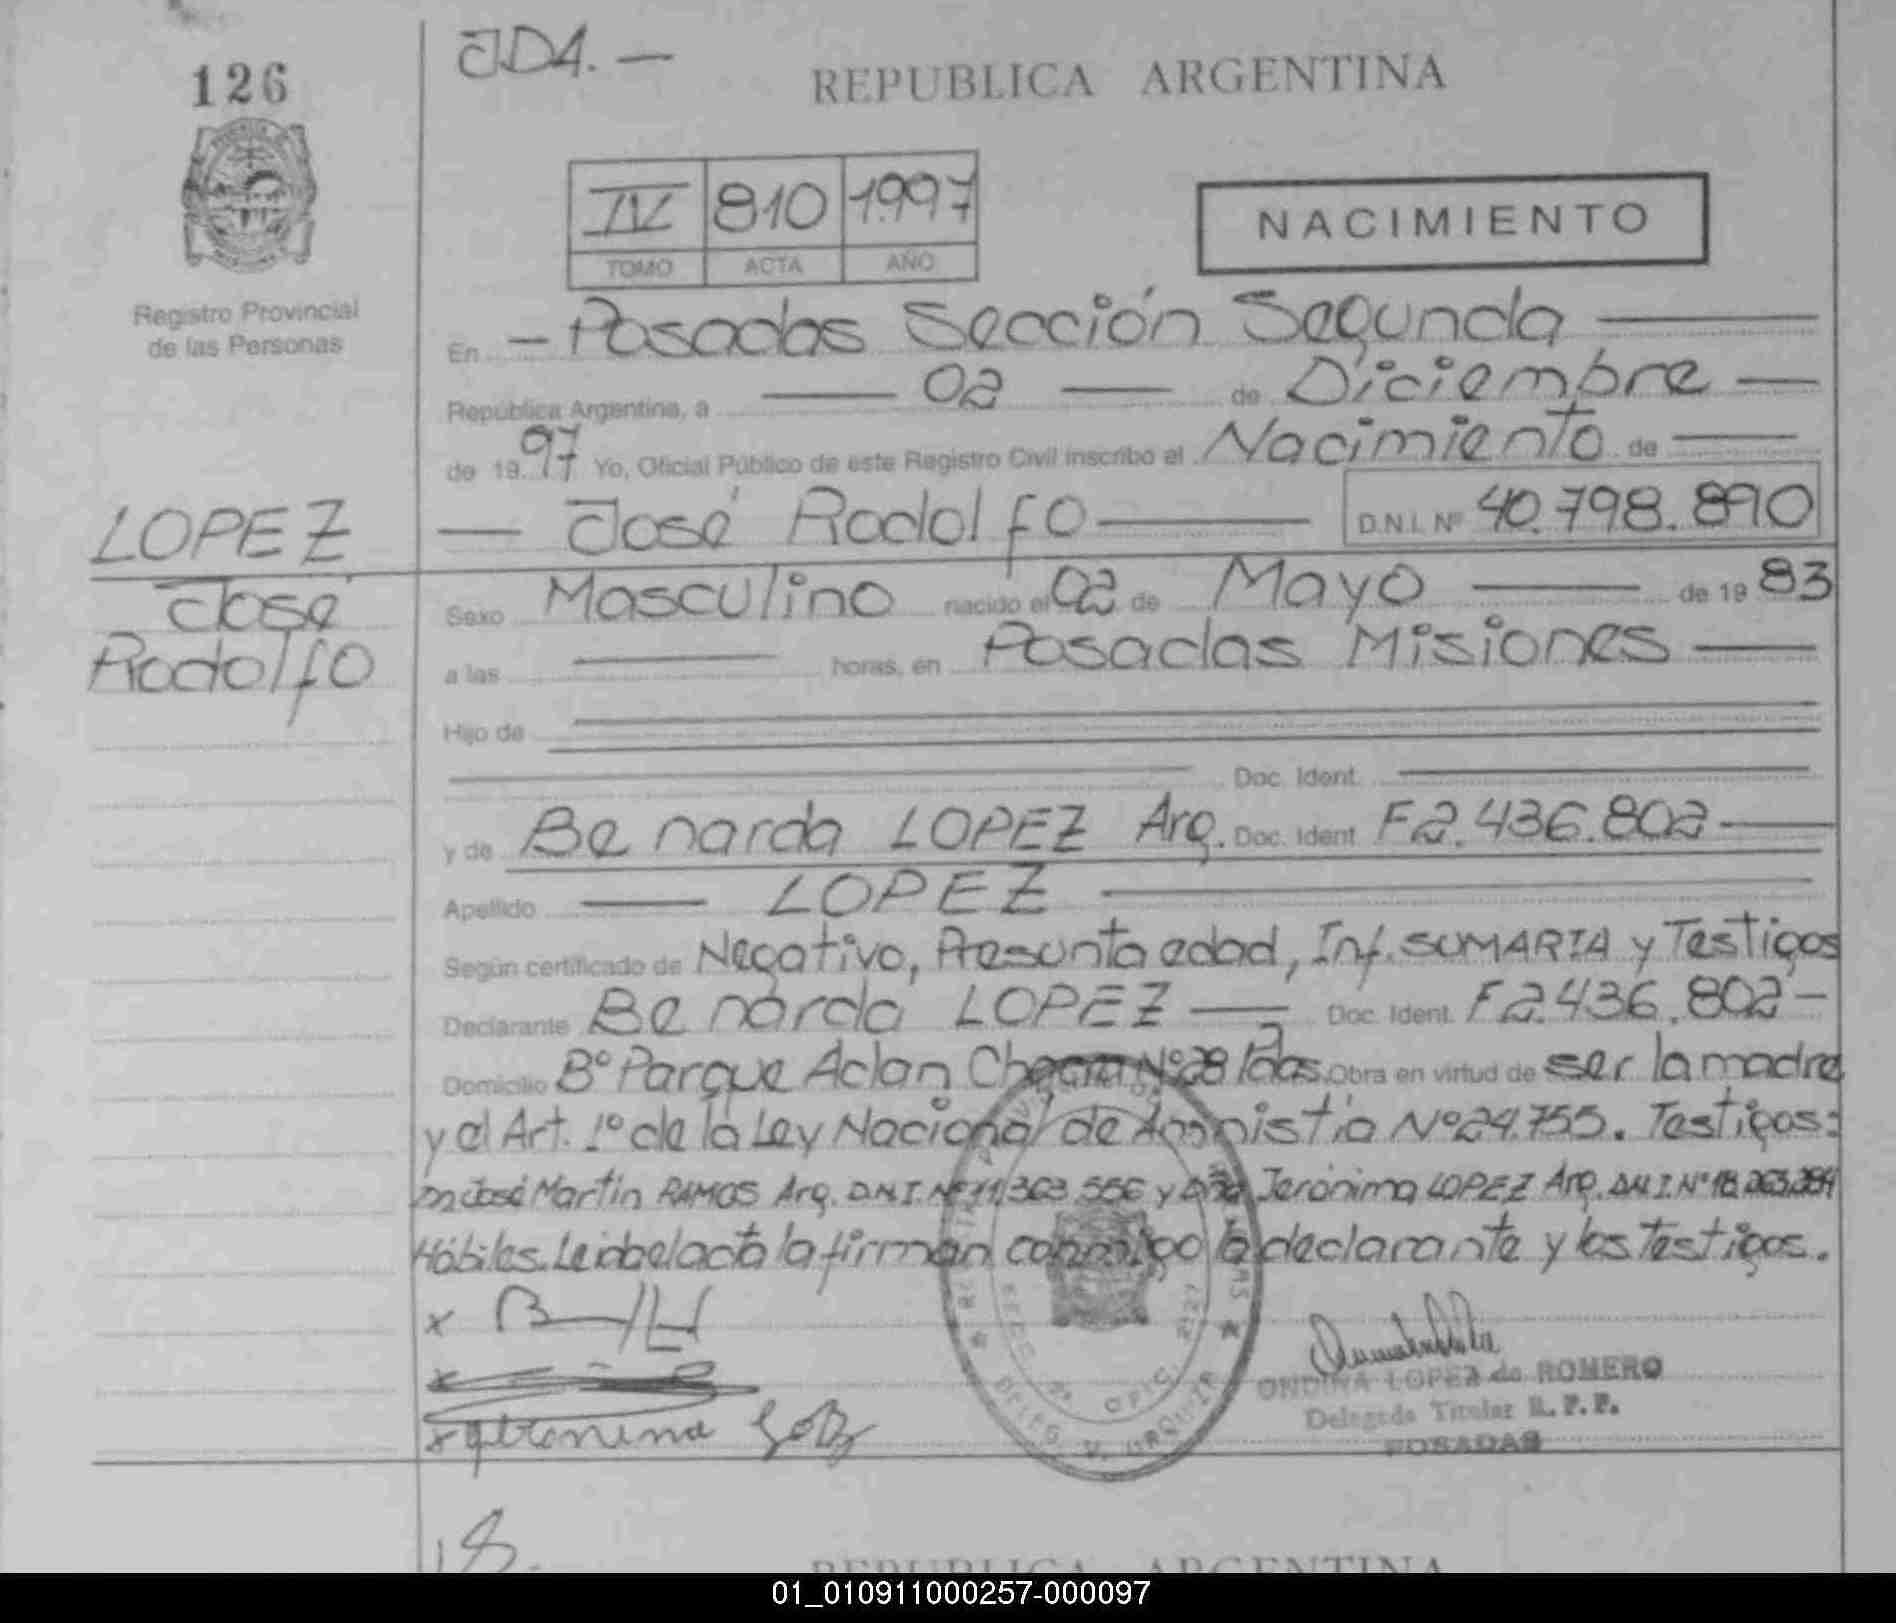 126
JDA.—
REPUBLICA ARGENTINA
IV 810 1997
TOMO ACTA AÑO
NACIMIENTO
Registro Provincial
de las Personas
En — Posadas Sección Segunda
República Argentina, a — 02 — de Diciembre —
de 1997 Yo, Oficial Público de este Registro Civil inscribo el Nacimiento de —
LOPEZ
José
Rodolfo
— José Rodolfo — D.N.I. Nº 40.798.890
Sexo Masculino nacido el 02 de Mayo — de 1983
a las — horas, en Posadas Misiones —
Hijo de
Doc. Ident.
y de Benarda LOPEZ Arg. Doc. Ident. F2.436.802 —
Apellido — LOPEZ
Según certificado de Negativo, Presunta edad, Inf. SUMARIA y Testigos
Declarante Benarda LOPEZ — Doc. Ident. F2.436.802 —
Domicilio Bº Parque Aclan Chacra Nº28 Pdas. Obra en virtud de ser la madre
y el Art. 1º de la Ley Nacional de Amnistia Nº24.755. Testigos:
Dn José Martin RAMOS Arg. D.N.I. Nº 11.363.556 y Dña Jerónima LOPEZ Arg. D.N.I. Nº 18.263.284
Hábiles. Leida el acta la firman conmigo la declarante y los Testigos.
ONDINA LOPEZ de ROMERO
Delegada Titular R. P. P.
POSADAS
REPUBLICA ARGENTINA
01_010911000257-000097